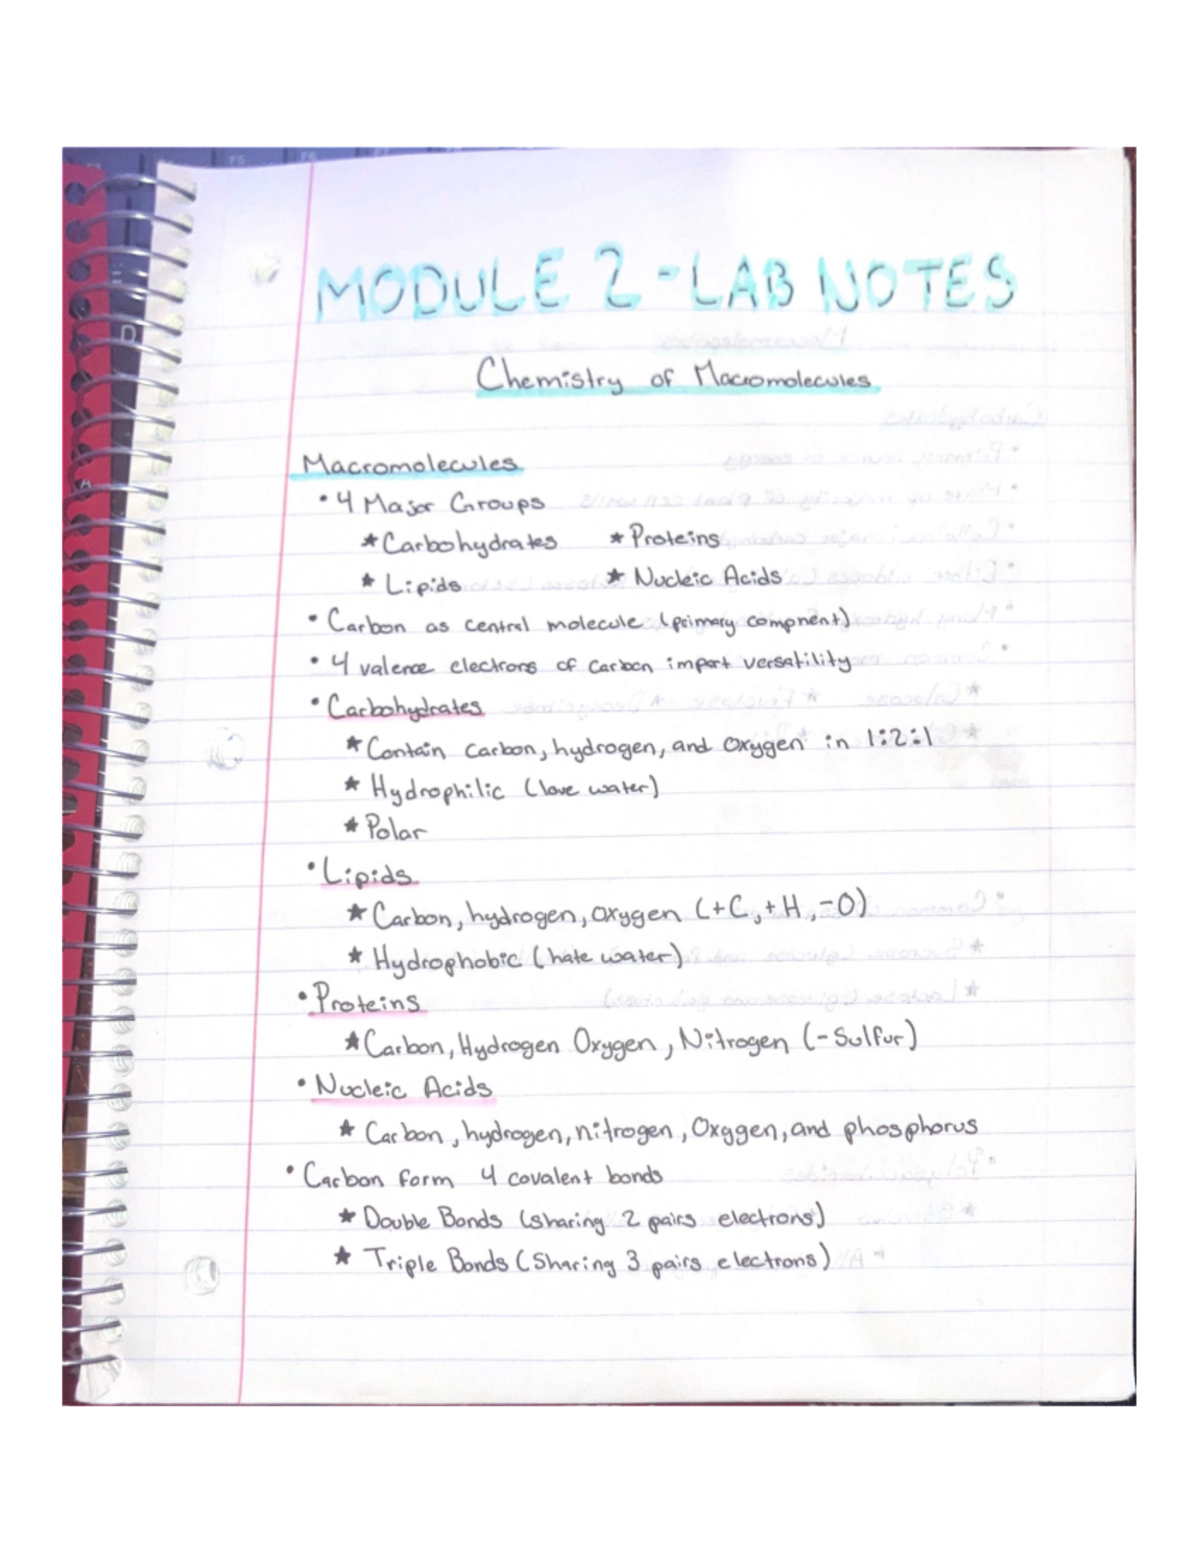 MODULE 2 - LAB NOTES
Chemistry of Macromolecules
Macromolecules
• 4 Major Groups
★ Carbohydrates ★ Proteins
★ Lipids ★ Nucleic Acids
• Carbon as central molecule (primary compnent)
• 4 valence electrons of carbon impart versatility
• Carbohydrates
★ Contain carbon, hydrogen, and oxygen in 1:2:1
★ Hydrophilic (love water)
★ Polar
• Lipids
★ Carbon, hydrogen, oxygen (+C, +H, -O)
★ Hydrophobic (hate water)
• Proteins
★ Carbon, Hydrogen Oxygen, Nitrogen (- Sulfur)
• Nucleic Acids
★ Carbon, hydrogen, nitrogen, Oxygen, and phosphorus
• Carbon form 4 covalent bonds
★ Double Bonds (sharing 2 pairs electrons)
★ Triple Bonds (Sharing 3 pairs electrons)